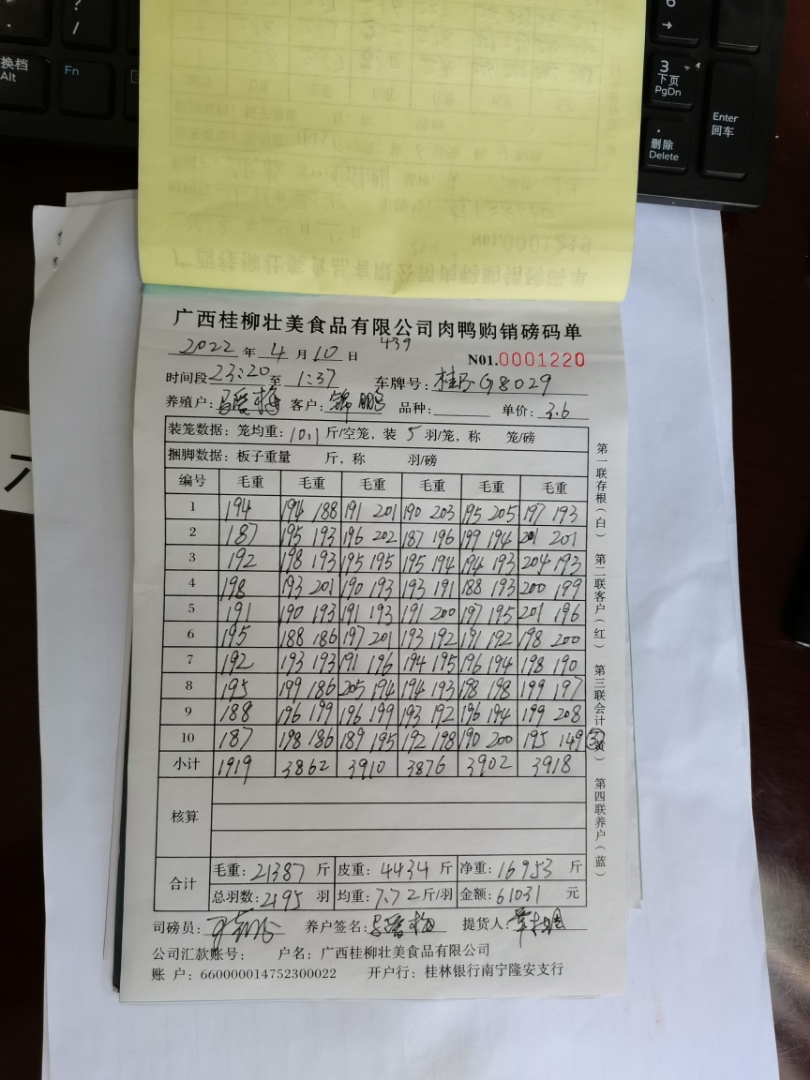 ?
/
换档
Alt
Fn
6
→
3
下页
PgDn
.
删除
Delete
Enter
回车
广西桂柳壮美食品有限公司肉鸭购销磅码单
2022 年 4 月 10 日 439 N01.0001220
时间段 23:20 至 1:37 车牌号: G8029
养殖户: 客户: 锦鹏 品种: 单价: 3.6
装笼数据: 笼均重: 10.1 斤/空笼, 装 5 羽/笼, 称 笼/磅
捆脚数据: 板子重量 斤, 称 羽/磅
编号 毛重 毛重 毛重 毛重 毛重 毛重
1 194 194 188 191 201 190 203 195 205 197 193
2 187 195 193 196 202 187 196 199 194 201 201
3 192 198 193 195 195 195 194 194 193 204 193
4 198 193 201 190 193 193 191 188 193 200 199
5 191 190 193 191 193 191 200 197 195 201 196
6 195 188 186 197 201 193 192 191 192 198 200
7 192 193 193 191 196 194 195 196 194 198 190
8 195 199 186 205 194 194 193 198 198 199 197
9 188 196 199 196 199 193 192 196 194 199 208
10 187 198 186 189 195 192 198 190 200 195 149
小计 1919 3862 3910 3876 3902 3918
核算
合计 毛重: 21387 斤 皮重: 4434 斤 净重: 16953 斤
总羽数: 2195 羽 均重: 7.72 斤/羽 金额: 61031 元
司磅员: 养户签名: 提货人:
公司汇款账号: 户名: 广西桂柳壮美食品有限公司
账 户: 660000014752300022 开户行: 桂林银行南宁隆安支行
第一联存根(白) 第二联客户(红) 第三联会计(黄) 第四联养户(蓝)